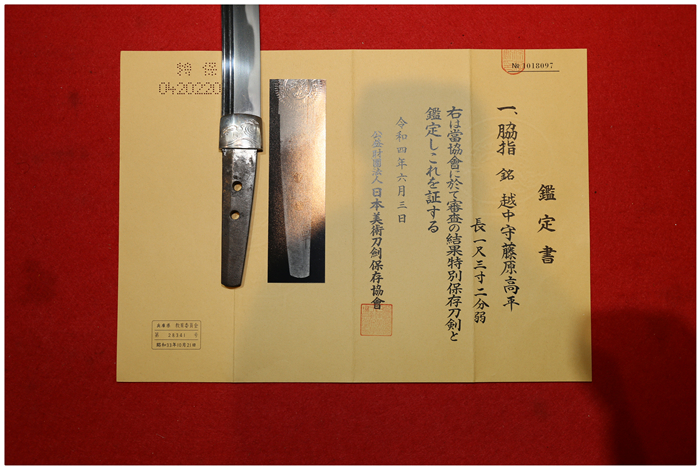 № 1018097
鑑定書
一、脇指 銘 越中守藤原高平
長 一尺三寸二分弱
右は當協會に於て審査の結果特別保存刀剣と
鑑定しこれを証する
令和四年六月三日
公益財團法人日本美術刀劍保存協會
特保
0420220
昭和33年10月21日